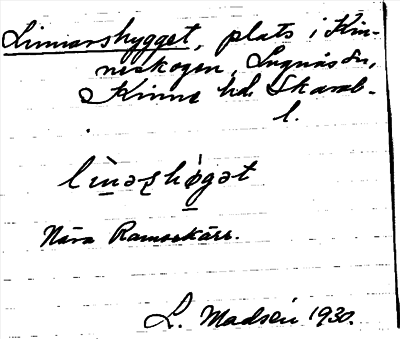 Linnarshygget, plats i Kin-
neskogen, Lugnås sn,
Kinne hd. Skarab-
l.
lìnəʂhǿgət
Nära Ramsekärr.
L. Madsén 1930.